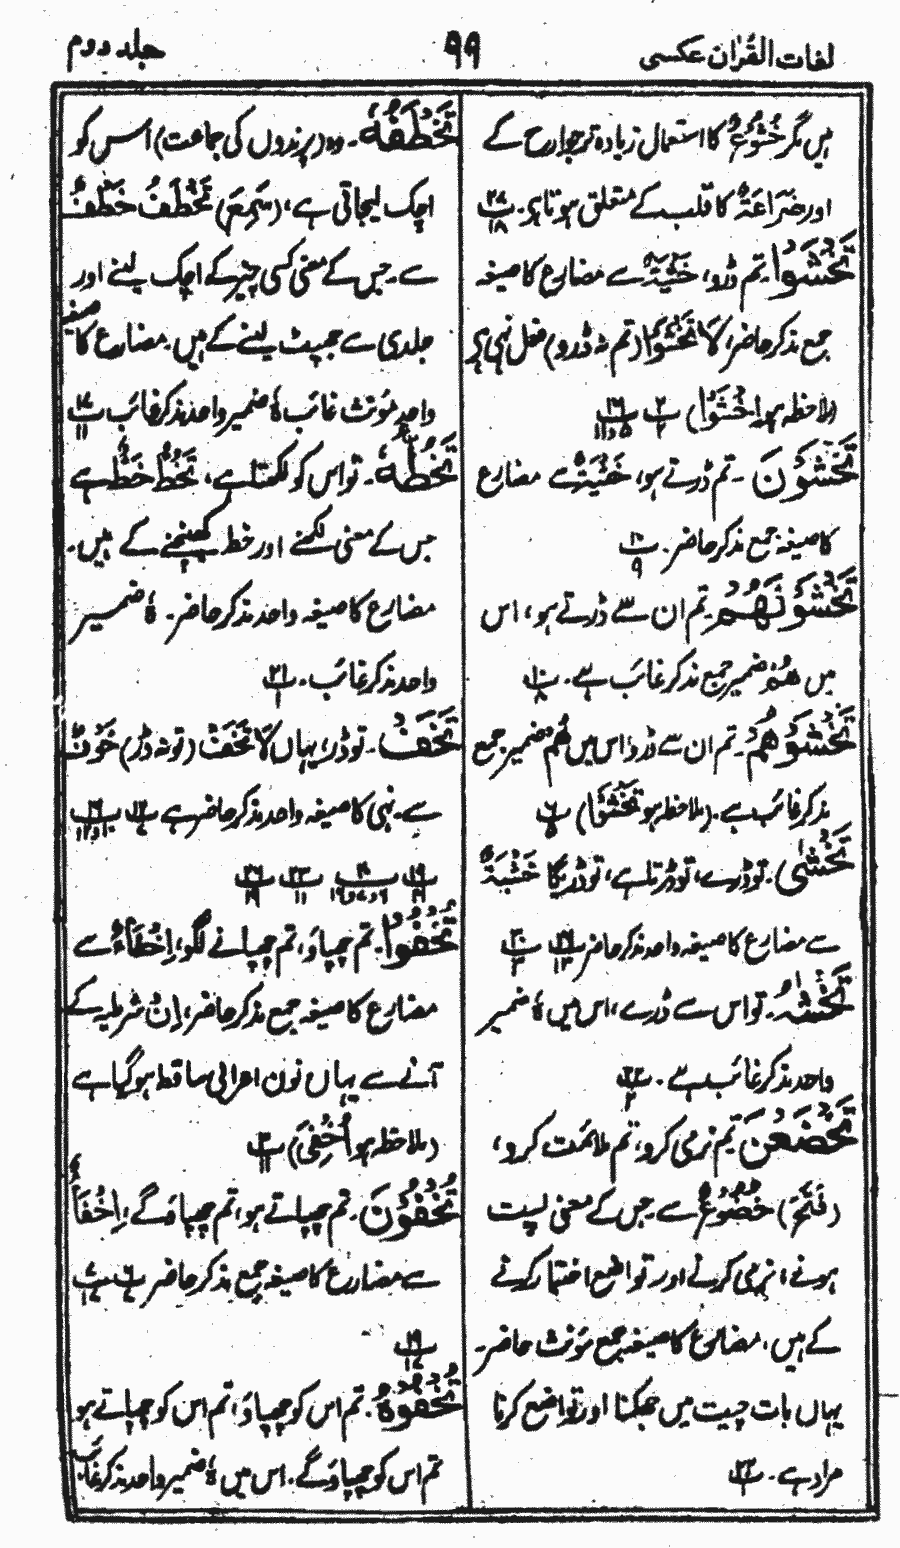 لغات القرآن عکسی
۹۹
جلد دوم
ہیں مگر خُشُوْعٌ کا استعمال زیادہ تر جوارح کے
اور ضَرَاعَۃٌ کا قلب کے متعلق ہوتا ہے۔ ۲۷ ۱۸
تَخْشَوْا۔ تم ڈرو، خَشْیَۃٌ سے مضارع کا صیغہ
جمع مذکر حاضر، لَا تَخْشَوْا (تم نہ ڈرو) فعل نہی ہے
(ملاحظہ ہو اِخْشَوْا) ۲
تَخْشَوْنَ ۔ تم ڈرتے ہو، خَشْیَۃٌ سے مضارع
کا صیغہ جمع مذکر حاضر۔ ۱۰ ۹
تَخْشَوْنَھُمْ۔ تم ان سے ڈرتے ہو، اس
میں ھُمْ ضمیر جمع مذکر غائب ہے۔ ۱۰ ۸
تَخْشَوْھُمْ۔ تم ان سے ڈرو، اس میں ھُمْ ضمیر جمع
مذکر غائب ہے۔ (ملاحظہ ہو تَخْشَوْا) ۶ ۵
تَخْشٰی۔ تو ڈرے، تو ڈرتا ہے، تو ڈریگا خَشْیَۃٌ
سے مضارع کا صیغہ واحد مذکر حاضر
تَخْشٰہُ۔ تو اس سے ڈرے، اس میں ہٗ ضمیر
واحد مذکر غائب ہے۔ ۲۲ ۲
تَخْضَعْنَ۔ تم نرمی کرو، تم ملائمت کرو،
(فَتَحَ) خُضُوْعٌ سے۔ جس کے معنی پست
ہونے، نرمی کرنے اور تواضع اختیار کرنے
کے ہیں، مضارع کا صیغہ جمع مؤنث حاضر۔
یہاں بات چیت میں جھکنا اور تواضع کرنا
مراد ہے۔ ۲۲
تَخْطَفُہٗ۔ وہ (پرندوں کی جماعت) اُس کو
اچک لیجاتی ہے، (سَمِعَ) تَخْطَفُ خَطْفٌ
سے۔ جس کے معنی کسی چیز کے اچک لینے اور
جلدی سے جھپٹ لینے کے ہیں۔ مضارع کا صیغہ
واحد مؤنث غائب ہٗ ضمیر واحد مذکر غائب ۱۷ ۱۱
تَخُطُّہٗ۔ تو اس کو لکھتا ہے، تَخُطُّ خَطٌّ سے
جس کے معنی لکھنے اور خط کھینچنے کے ہیں۔
مضارع کا صیغہ واحد مذکر حاضر۔ ہٗ ضمیر
واحد مذکر غائب۔ ۲۱ ۱
تَخَفْ۔ تو ڈر، یہاں لَا تَخَفْ (تو نہ ڈر) خَوْفٌ
سے۔ نہی کا صیغہ واحد مذکر حاضر ہے
تُخْفُوْا۔ تم چھپاؤ، تم چھپانے لگو، اِخْفَاءٌ سے
مضارع کا صیغہ جمع مذکر حاضر، اِنْ شرطیہ کے
آنے سے یہاں نون اعرابی ساقط ہو گیا ہے
(ملاحظہ ہو اُخْفِیَ)
تُخْفُوْنَ۔ تم چھپاتے ہو، تم چھپاؤ گے، اِخْفَاءٌ
سے مضارع کا صیغہ جمع مذکر حاضر
تُخْفُوْہُ۔ تم اس کو چھپاؤ، تم اس کو چھپاتے ہو
تم اس کو چھپاؤ گے۔ اس میں ہٗ ضمیر واحد مذکر غائب